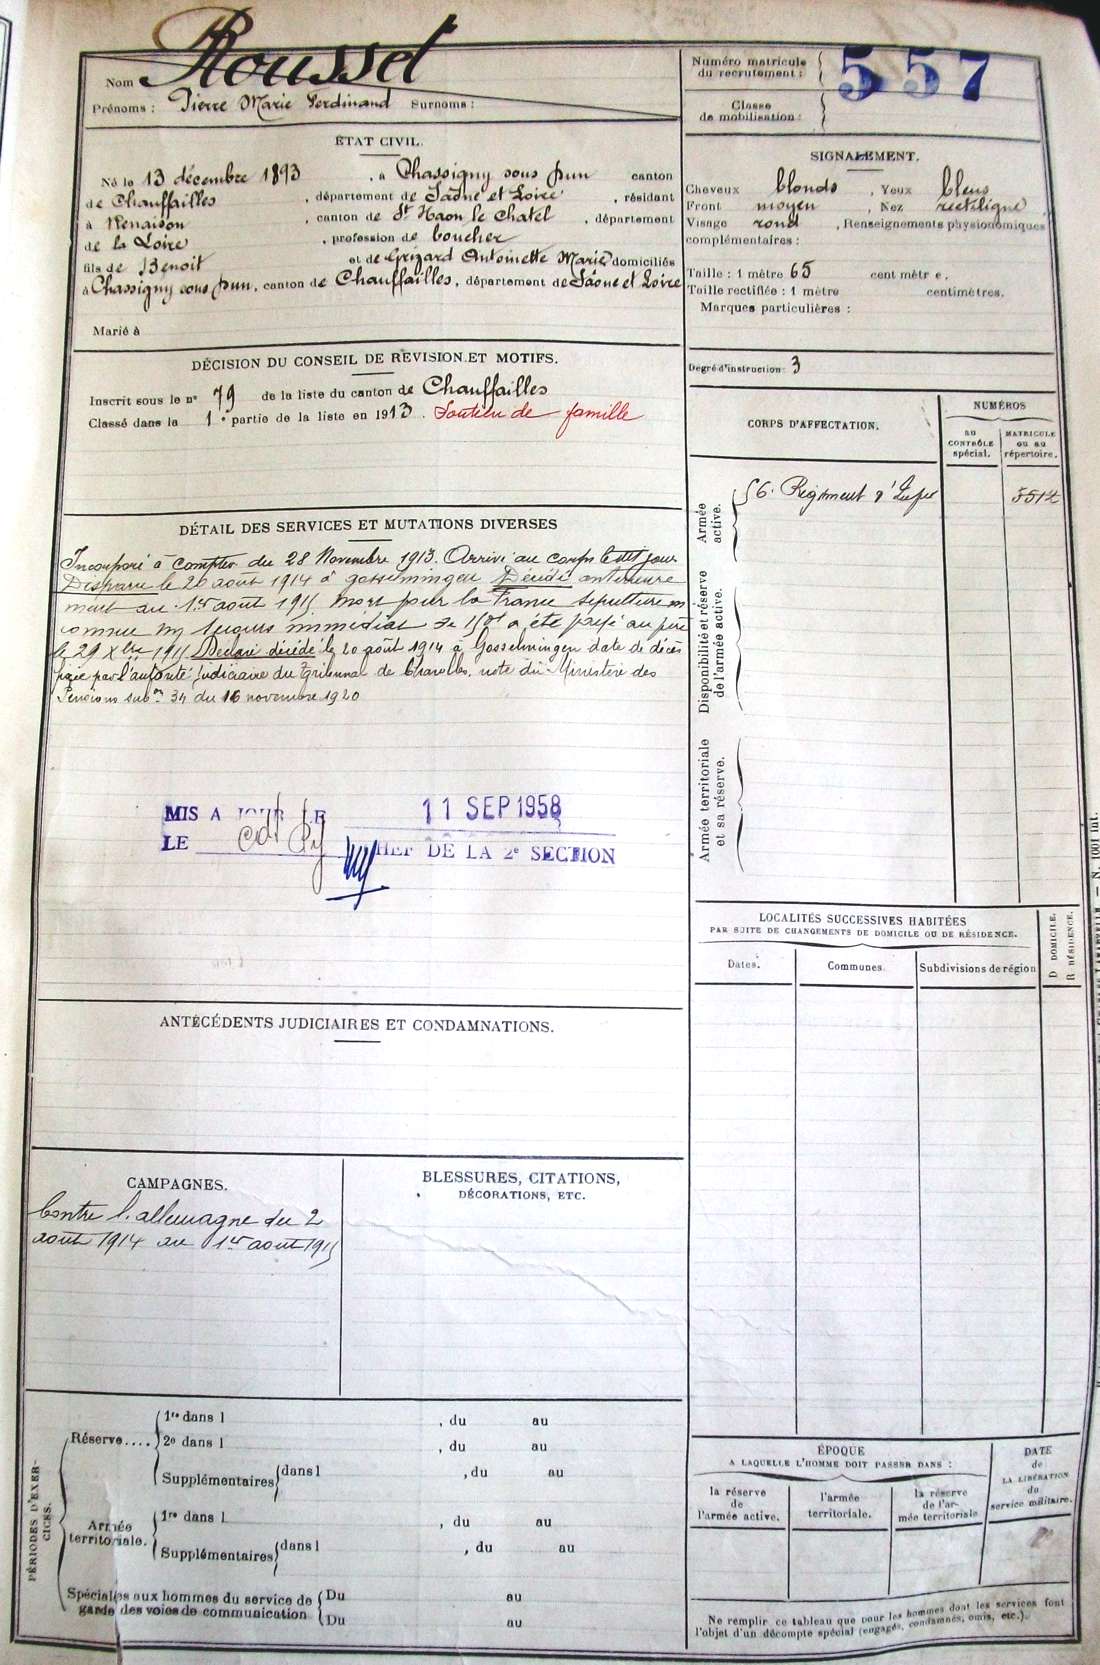 Nom Rousset
Prénoms : Pierre Marie Ferdinand Surnoms :
Numéro matricule
du recrutement : 557
Classe
de mobilisation :
ÉTAT CIVIL.
Né le 13 décembre 1893, à Chassigny sous Dun canton
de Chauffailles, département de Saône et Loire, résidant
à Renaison, canton de St Haon le Chatel, département
de la Loire, profession de boucher
fils de Benoit et de Grizard Antoinette Marie domiciliés
à Chassigny sous Dun, canton de Chauffailles, département de Saône et Loire
Marié à
SIGNALEMENT.
Cheveux blonds, Yeux bleus
Front moyen, Nez rectiligne
Visage rond, Renseignements physionomiques
complémentaires :
Taille : 1 mètre 65 centimètre.
Taille rectifiée : 1 mètre centimètres.
Marques particulières :
Degré d'instruction : 3
DÉCISION DU CONSEIL DE REVISION ET MOTIFS.
Inscrit sous le n° 79 de la liste du canton de Chauffailles
Classé dans la 1e partie de la liste en 1913. Soutien de famille
CORPS D'AFFECTATION.
NUMÉROS
AU
CONTRÔLE
spécial.
MATRICULE
OU AU
répertoire.
Armée
active.
56e Régiment d'Infie 5514
Disponibilité et réserve
de l'armée active.
Armée territoriale
et sa réserve.
DÉTAIL DES SERVICES ET MUTATIONS DIVERSES
Incorporé à compter du 28 Novembre 1913. Arrivé au corps le dit jour
Disparu le 20 août 1914 à Gosselmingen Décédé antérieure
ment au 1er août 1915 mort pour la France sépulture in
connue Un secours immédiat de 150f a été payé au père
le 29 Xbre 1915 Déclaré décédé le 20 août 1914 à Gosselmingen date de décès
fixée par l'autorité judiciaire du Tribunal de Charolles, note du Ministère des
Pensions subon 34 du 16 novembre 1920
MIS A JOUR LE 11 SEP 1958
LE CHEF DE LA 2e SECTION
LOCALITÉS SUCCESSIVES HABITÉES
PAR SUITE DE CHANGEMENTS DE DOMICILE OU DE RÉSIDENCE.
D DOMICILE.
R RÉSIDENCE.
Dates. Communes. Subdivisions de région
ANTÉCÉDENTS JUDICIAIRES ET CONDAMNATIONS.
CAMPAGNES.
Contre l'allemagne du 2
août 1914 au 1er août 1915
BLESSURES, CITATIONS,
DÉCORATIONS, ETC.
PÉRIODES D'EXER-
CICES.
Réserve....
1re dans l , du au
2e dans l , du au
Supplémentaires dans l , du au
Armée
territoriale.
1re dans l , du au
Supplémentaires dans l , du au
Spéciales aux hommes du service de
garde des voies de communication
Du au
Du au
ÉPOQUE
A LAQUELLE L'HOMME DOIT PASSER DANS :
la réserve
de
l'armée active.
l'armée
territoriale.
la réserve
de l'ar-
mée territoriale
DATE
de
LA LIBÉRATION
du
service militaire.
Ne remplir ce tableau que pour les hommes dont les services font
l'objet d'un décompte spécial (engagés, condamnés, omis, etc.).
N. 1001 int.